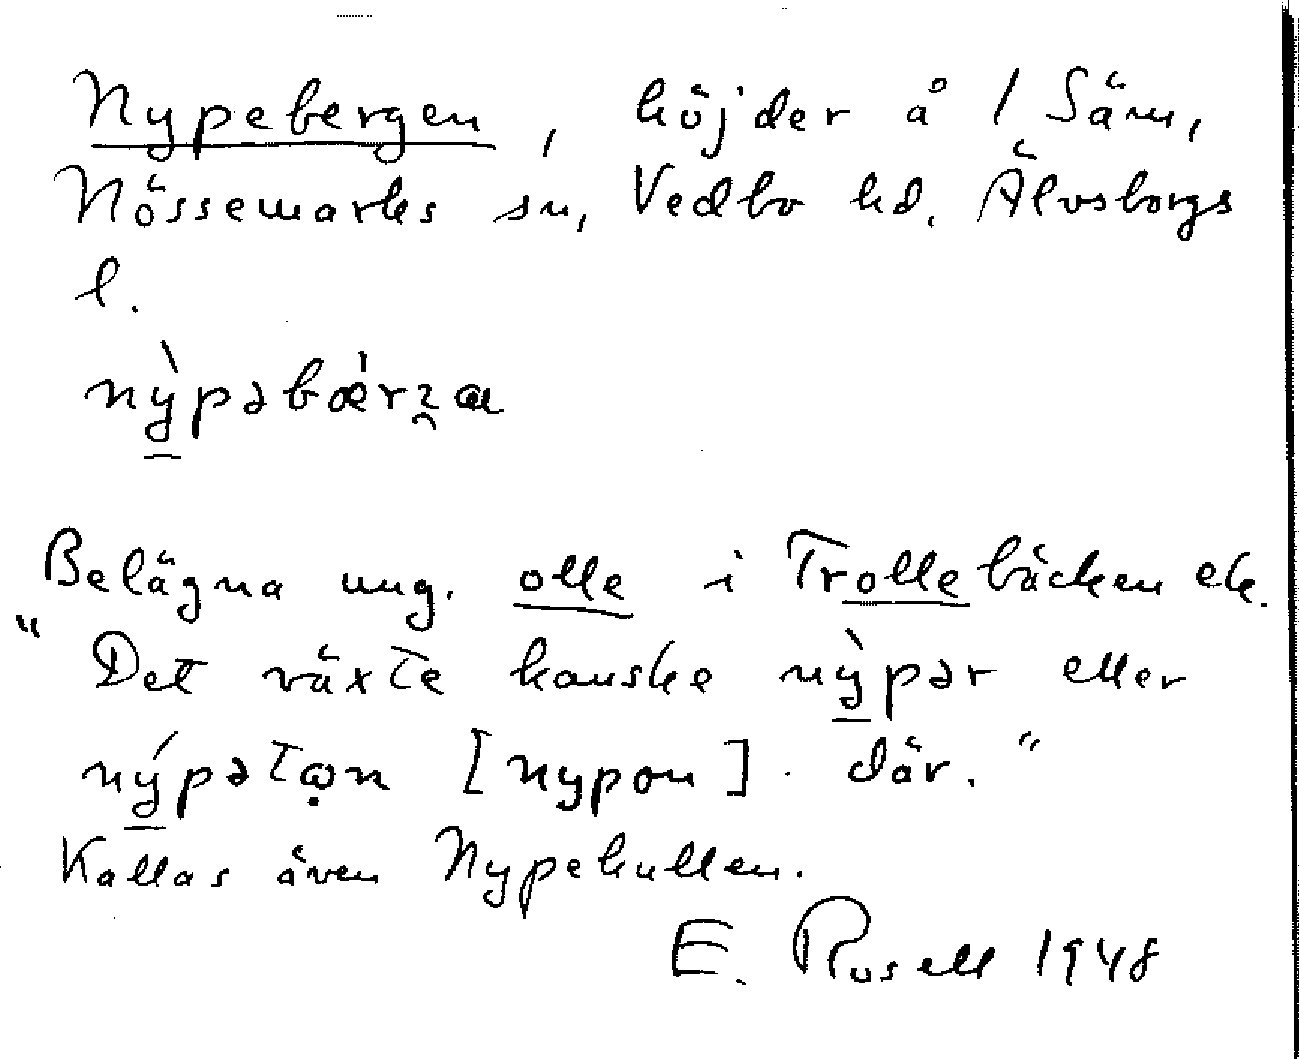 Nypebergen, höjder å 1 Säm,
Nössemarks sn, Vedbo hd. Älvsborgs
l.
nỳpəbǽrʒ̯a
Belägna ung. olle i Trollebäcken ek.
"Det växte kanske nỳpər eller
nýpətọn [nypon] där."
Kallas även Nypekullen.
E. Rosell 1948